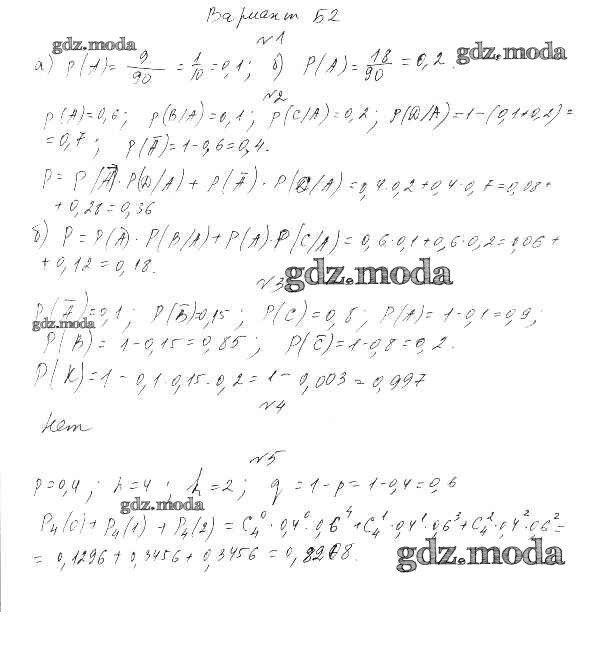 Вариант Б2
№1
gdz.moda
gdz.moda
а) P(A)= 9/90 = 1/10 = 0,1; б) P(A)= 18/90 = 0,2.
№2
P(A)=0,6; P(B/A)=0,1; P(C/A)=0,2; P(D/A)=1-(0,1+0,2)=
=0,7; P(Ā)=1-0,6=0,4.
P= P(Ā)·P(D/A) + P(Ā)·P(C/A)=0,4·0,2+0,4·0,7=0,08+
+0,28=0,36
б) P=P(A)·P(B/A)+P(A)·P(C/A)=0,6·0,1+0,6·0,2=0,06+
+0,12=0,18.
gdz.moda
№3
P(Ā)=0,1; P(B̄)=0,15; P(C)=0,8; P(A)=1-0,1=0,9;
gdz.moda
P(B)= 1-0,15=0,85; P(C̄)=1-0,8=0,2.
P(K)=1-0,1·0,15·0,2=1-0,003=0,997
№4
Нет
№5
p=0,4; n=4; k=2; q=1-p=1-0,4=0,6
gdz.moda
P₄(0)+P₄(1)+P₄(2)=C₄⁰·0,4⁰·0,6⁴+C₄¹·0,4¹·0,6³+C₄²·0,4²·0,6²=
=0,1296+0,3456+0,3456=0,8208.
gdz.moda